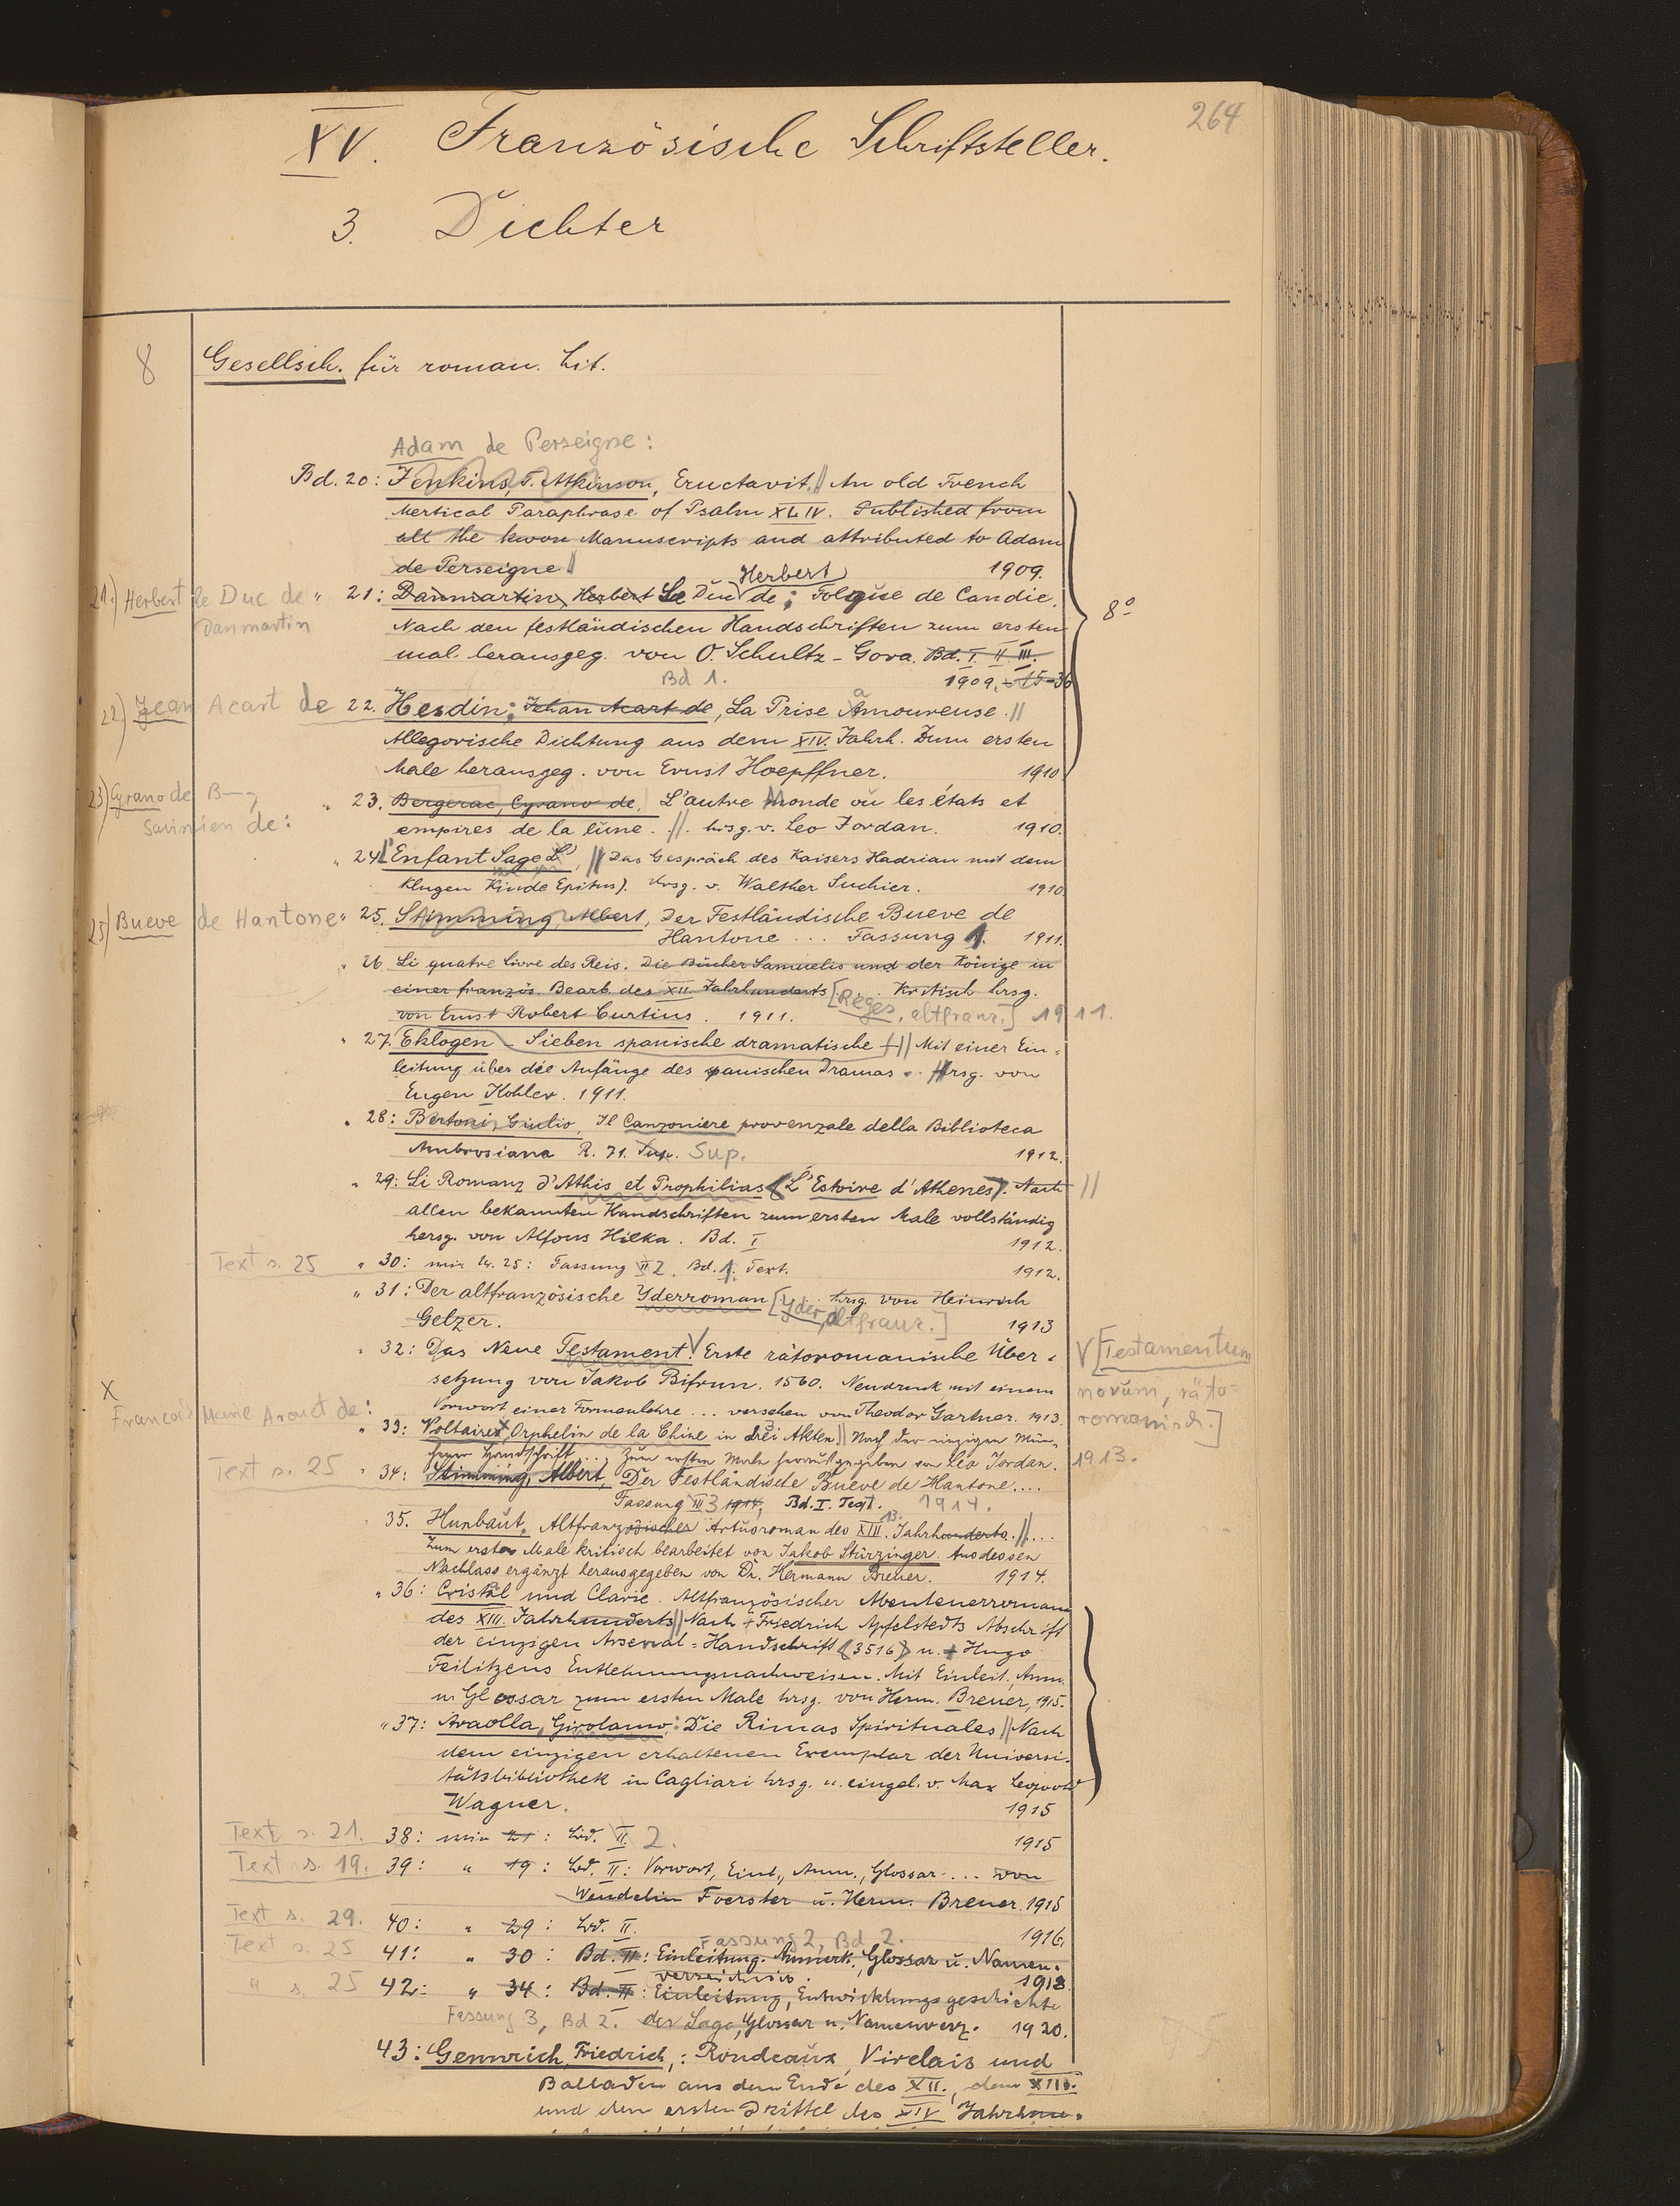 264
XV. Französische Schriftsteller.
3. Dichter
8 Gesellsch. für roman. Lit.
Adam de Perseigne:
Bd. 20: Jenkins, T. Atkinson, Eructavit. // An old French
Mertical Paraphrase of Psalm XLIV. Published from
all the kwon Manuscripts and attributed to Adam
de Perseigne // 1909.
Herbert
21.) Herbert le Duc de " 21: Danmartin, Herbert Le Duc de; Folque de Candie.
Danmartin
8°
Nach den festländischen Handschriften zum ersten
mal herausgeg. von O. Schultz-Gora. Bd. I. II III.
Bd 1. 1909.-15-36
22.) Jean Acart de 22. Hesdin; Jehan Acart de, La Prise Amoureuse. //
Allegorische Dichtung aus dem XIV. Jahrh. Zum ersten
Male herausgeg. von Ernst Hoepffner. 1910
23.) Cyrano de B—, " 23. Bergerac, Cyrano de, L'autre Monde ou les états et
Savinien de:
empires de la lune. //. hrsg. v. Leo Jordan. 1910.
" 24. L'Enfant Sage L', // Das Gespräch des Kaisers Hadrian mit dem
klugen Kinde Epitus). Hrsg. v. Walther Suchier. 1910
25) Bueve de Hantone " 25. Stimming, Albert, Der Festländische Bueve de
Hantone ... Fassung 1. 1911.
" 26 Li quatre Livre des Reis. Die Bücher Samuelis und der Könige in
einer französ. Bearb. des XII. Jahrhunderts . Kritisch hrsg.
von Ernst Robert Curtius. 1911. [Reges, altfranz.] 1911.
" 27. Eklogen - Sieben spanische dramatische - // Mit einer Ein-
leitung über die Anfänge des spanischen Dramas. Hrsg. von
Eugen Kohler. 1911.
" 28: Bertoni, Giulio, Il Canzoniere provenzale della Biblioteca
Ambrosiana R. 71. Sup. Sup. 1912.
" 29: Li Romanz d'Athis et Prophilias (L'Estoire d'Athenes). Nach //
allen bekannten Handschriften zum ersten Male vollständig
hersg. von Alfons Hilka. Bd. I 1912.
Text s. 25 " 30: Nr. 25: Fassung II 2. Bd. 1. Text. 1912.
" 31: Der altfranzösische Yderroman . hrsg. von Heinrich
Gelzer. [Yder, altfranz.] 1913
" 32: Das Neue Testament. V Erste rätoromanische Über-
V [Testamentum
setzung von Jakob Bifrun. 1560. Neudruck mit einem
novum, räto-
Vorwort einer Formenlehre ... versehen von Theodor Gartner. 1913.
romanisch.]
X
Francois Marie Arouet de:
" 33: Voltaire x, Orphelin de la Chine in drei 3 Akten // Nach der einzigen Mün-
chener Handschrift ..., zum ersten Male herausgegeben von Leo Jordan. 1913.
Text s. 25 " 34: Stimming, Albert, Der Festländische Bueve de Hantone....
Fassung III 3 1914, Bd. I. Text. 1914.
" 35. Hunbaut, Altfranzösischer Artusroman des XIII. 13. Jahrhunderts. //...
Zum ersten Male kritisch bearbeitet von Jakob Stürzinger. Aus dessen
Nachlass ergänzt herausgegeben von Dr. Hermann Breuer. 1914.
" 36: Cristal und Clarie. Altfranzösischer Abenteuerroman
des XIII. Jahrhunderts // Nach + Friedrich Apfelstedts Abschrift
der einzigen Arsenal-Handschrift (3516) u. + Hugo
Feilitzens Entlehnungsnachweisen. Mit Einleit., Anm.
u. Glossar zum ersten Male hrsg. von Herm. Breuer, 1915.
" 37: Araolla, Girolamo: Die Rimas Spirituales // Nach
dem einzigen erhaltenen Exemplar der Universi-
tätsbibliothek in Cagliari hrsg. u. eingel. v. Max Leopold
Wagner. 1915
Text s. 21. 38: 21: Bd. II. 2. 1915
Text s. 19. 39: " 19: Bd. II: Vorwort, Einl., Anm., Glossar.... von
Wendelin Foerster u. Herm. Breuer. 1915
Text s. 29. 40: " 29: Bd. II. 1916.
Fassung 2, Bd 2.
Text s. 25 41: " 30: Bd. II: Einleitung. Anmerk., Glossar u. Namen-
verzeichnis. 1918
" s. 25 42: " 34: Bd. II: Einleitung, Entwicklungsgeschichte
Fassung 3, Bd 2. der Sage, Glossar u. Namenverz. 1920.
43: Gennrich, Friedrich,: Rondeaux, Virelais und
Balladen aus dem Ende des XII., dem XIII.
und dem ersten Drittel des XIV. Jahrhun-